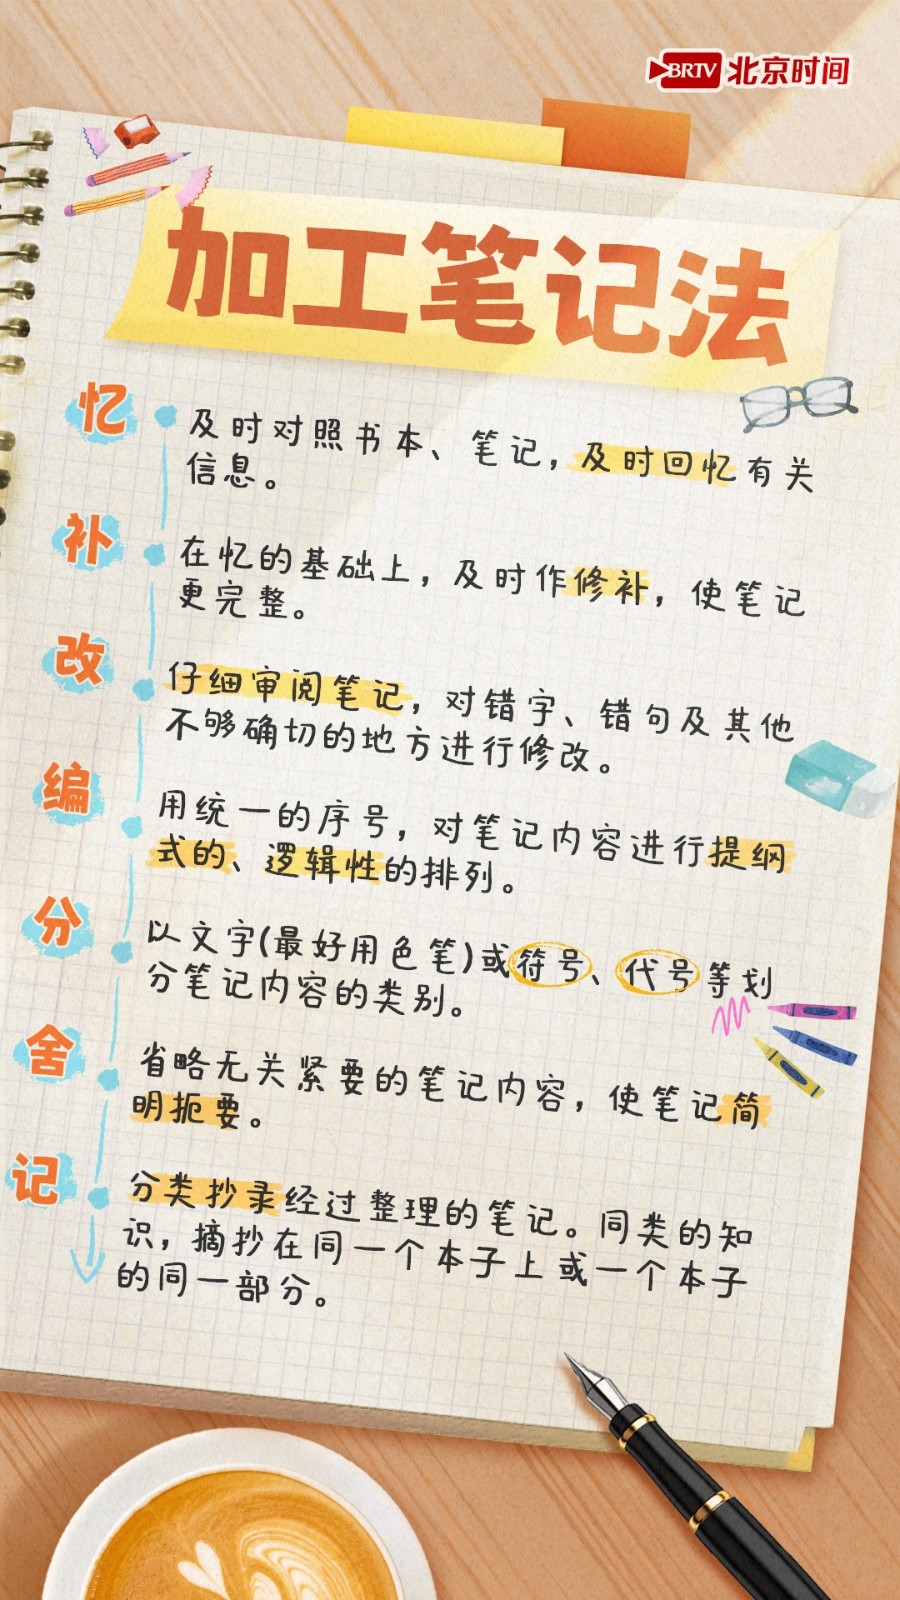 BRTV 北京时间
加工笔记法
忆
及时对照书本、笔记，及时回忆有关
信息。
补
在忆的基础上，及时作修补，使笔记
更完整。
改
仔细审阅笔记，对错字、错句及其他
不够确切的地方进行修改。
编
用统一的序号，对笔记内容进行提纲
式的、逻辑性的排列。
分
以文字(最好用色笔)或符号、代号等划
分笔记内容的类别。
舍
省略无关紧要的笔记内容，使笔记简
明扼要。
记
分类抄录经过整理的笔记。同类的知
识，摘抄在同一个本子上或一个本子
的同一部分。